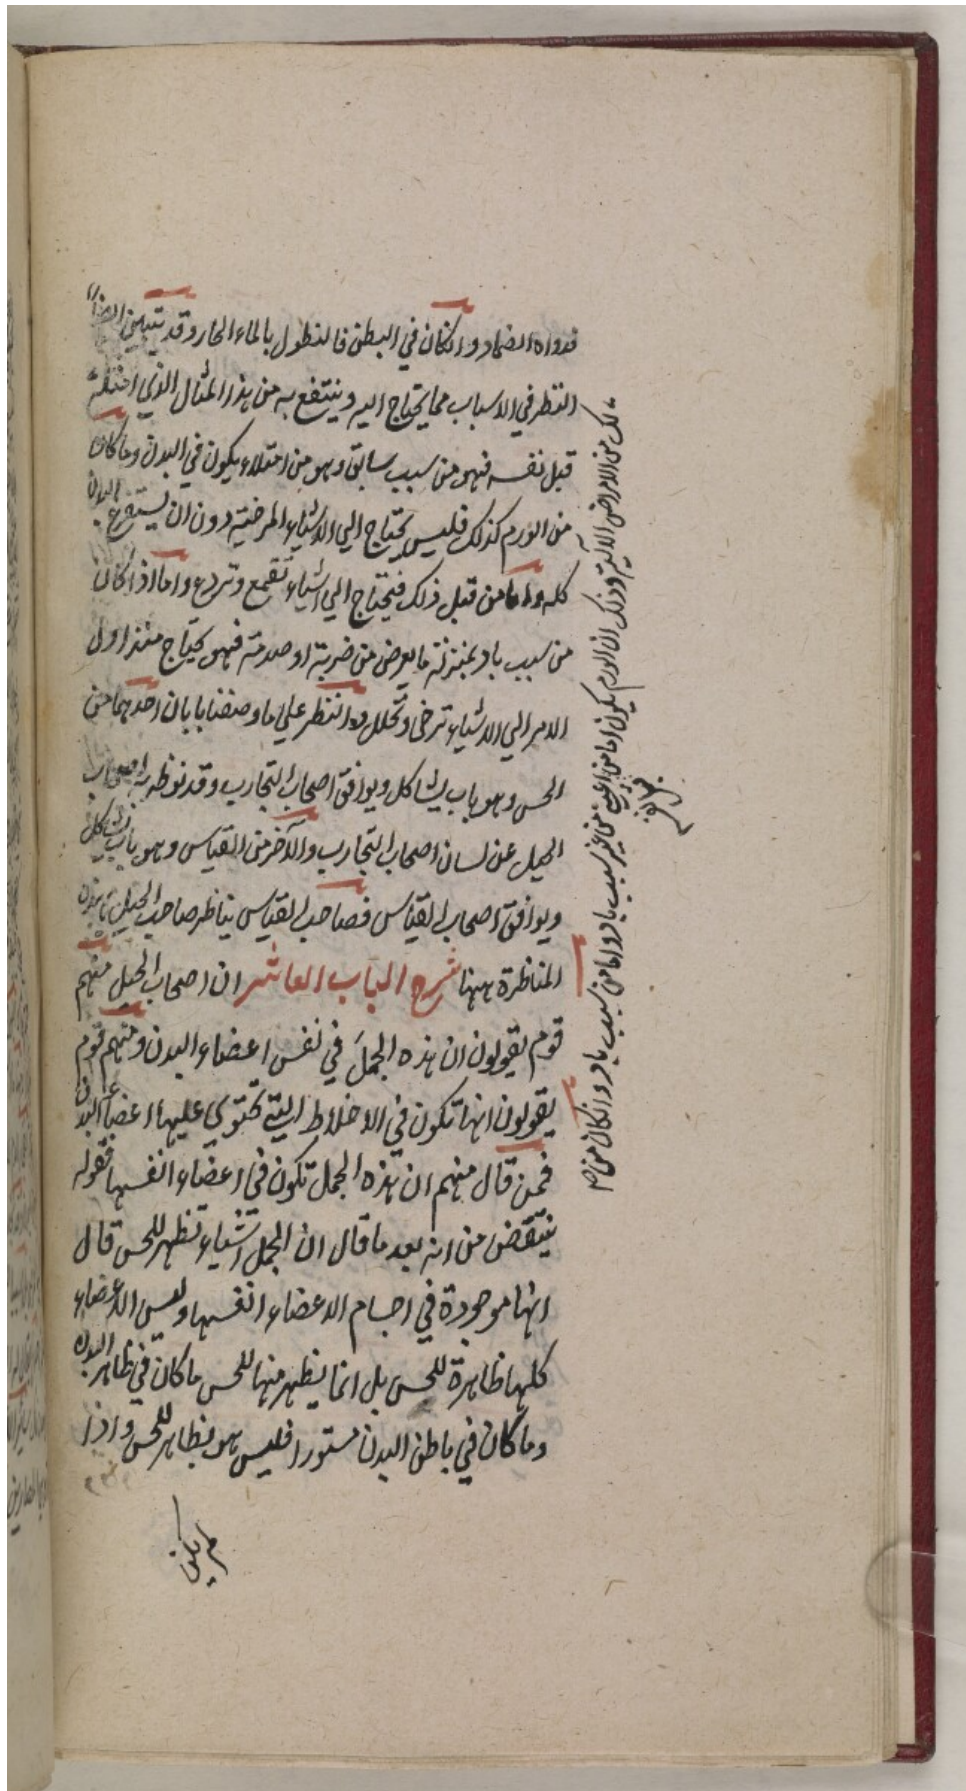 فدواه الضماد وان كان في البطن فالنطول بالماء الحار وقد يتبين ايضا
النظر في الاسباب مما يحتاج اليه وينتفع به من هذا المثال الذي
قبل نفسه فهو من سبب سابق وهو من امتلاء يكون في البدن وما كان
من الورم كذلك فليس يحتاج الي الاشياء المرخية دون ان يستفرغ البدن
كله واما من قبل ذلك فيحتاج الي اشياء تقمع وتردع واما اذا كان
من سبب باد بمنزلة ما يعرض من ضربة او صدمة فهو يحتاج منذ اول
الامر الي الاشياء ترخي وتحلل والنظر علي ما وصفنا بابان احدهما من
الحس وهو باب يشاكل ويوافق اصحاب التجارب وقد نوظر به اصحاب
الحيل عن لسان اصحاب التجارب والآخر من القياس وهو باب يشاكل
ويوافق اصحاب القياس فصاحب القياس يناظر صاحب الحيل هذه
المناظرة ههنا شرح الباب العاشر ان اصحاب الحيل منهم
قوم يقولون ان هذه الجمل في نفس اعضاء البدن ومنهم قوم
يقولون انها تكون في الاخلاط التي تحتوي عليها اعضاء البدن
فمن قال منهم ان هذه الجمل تكون في اعضاء انفسها فقوله
ينتقض من انه بعد ما قال ان الجمل اشياء تظهر للحس قال
انها موجودة في اجسام الاعضاء انفسها وليس الاعضاء
كلها ظاهرة للحس بل انما يظهر منها للحس ما كان في ظاهر البدن
وما كان في باطن البدن مستورا فليس هو بظاهر للحس واذا
لم يكن
لك من الامراض الآلية وذلك ان الورم يكون اما من من غير سبب باد واما من سبب باد وان كان من